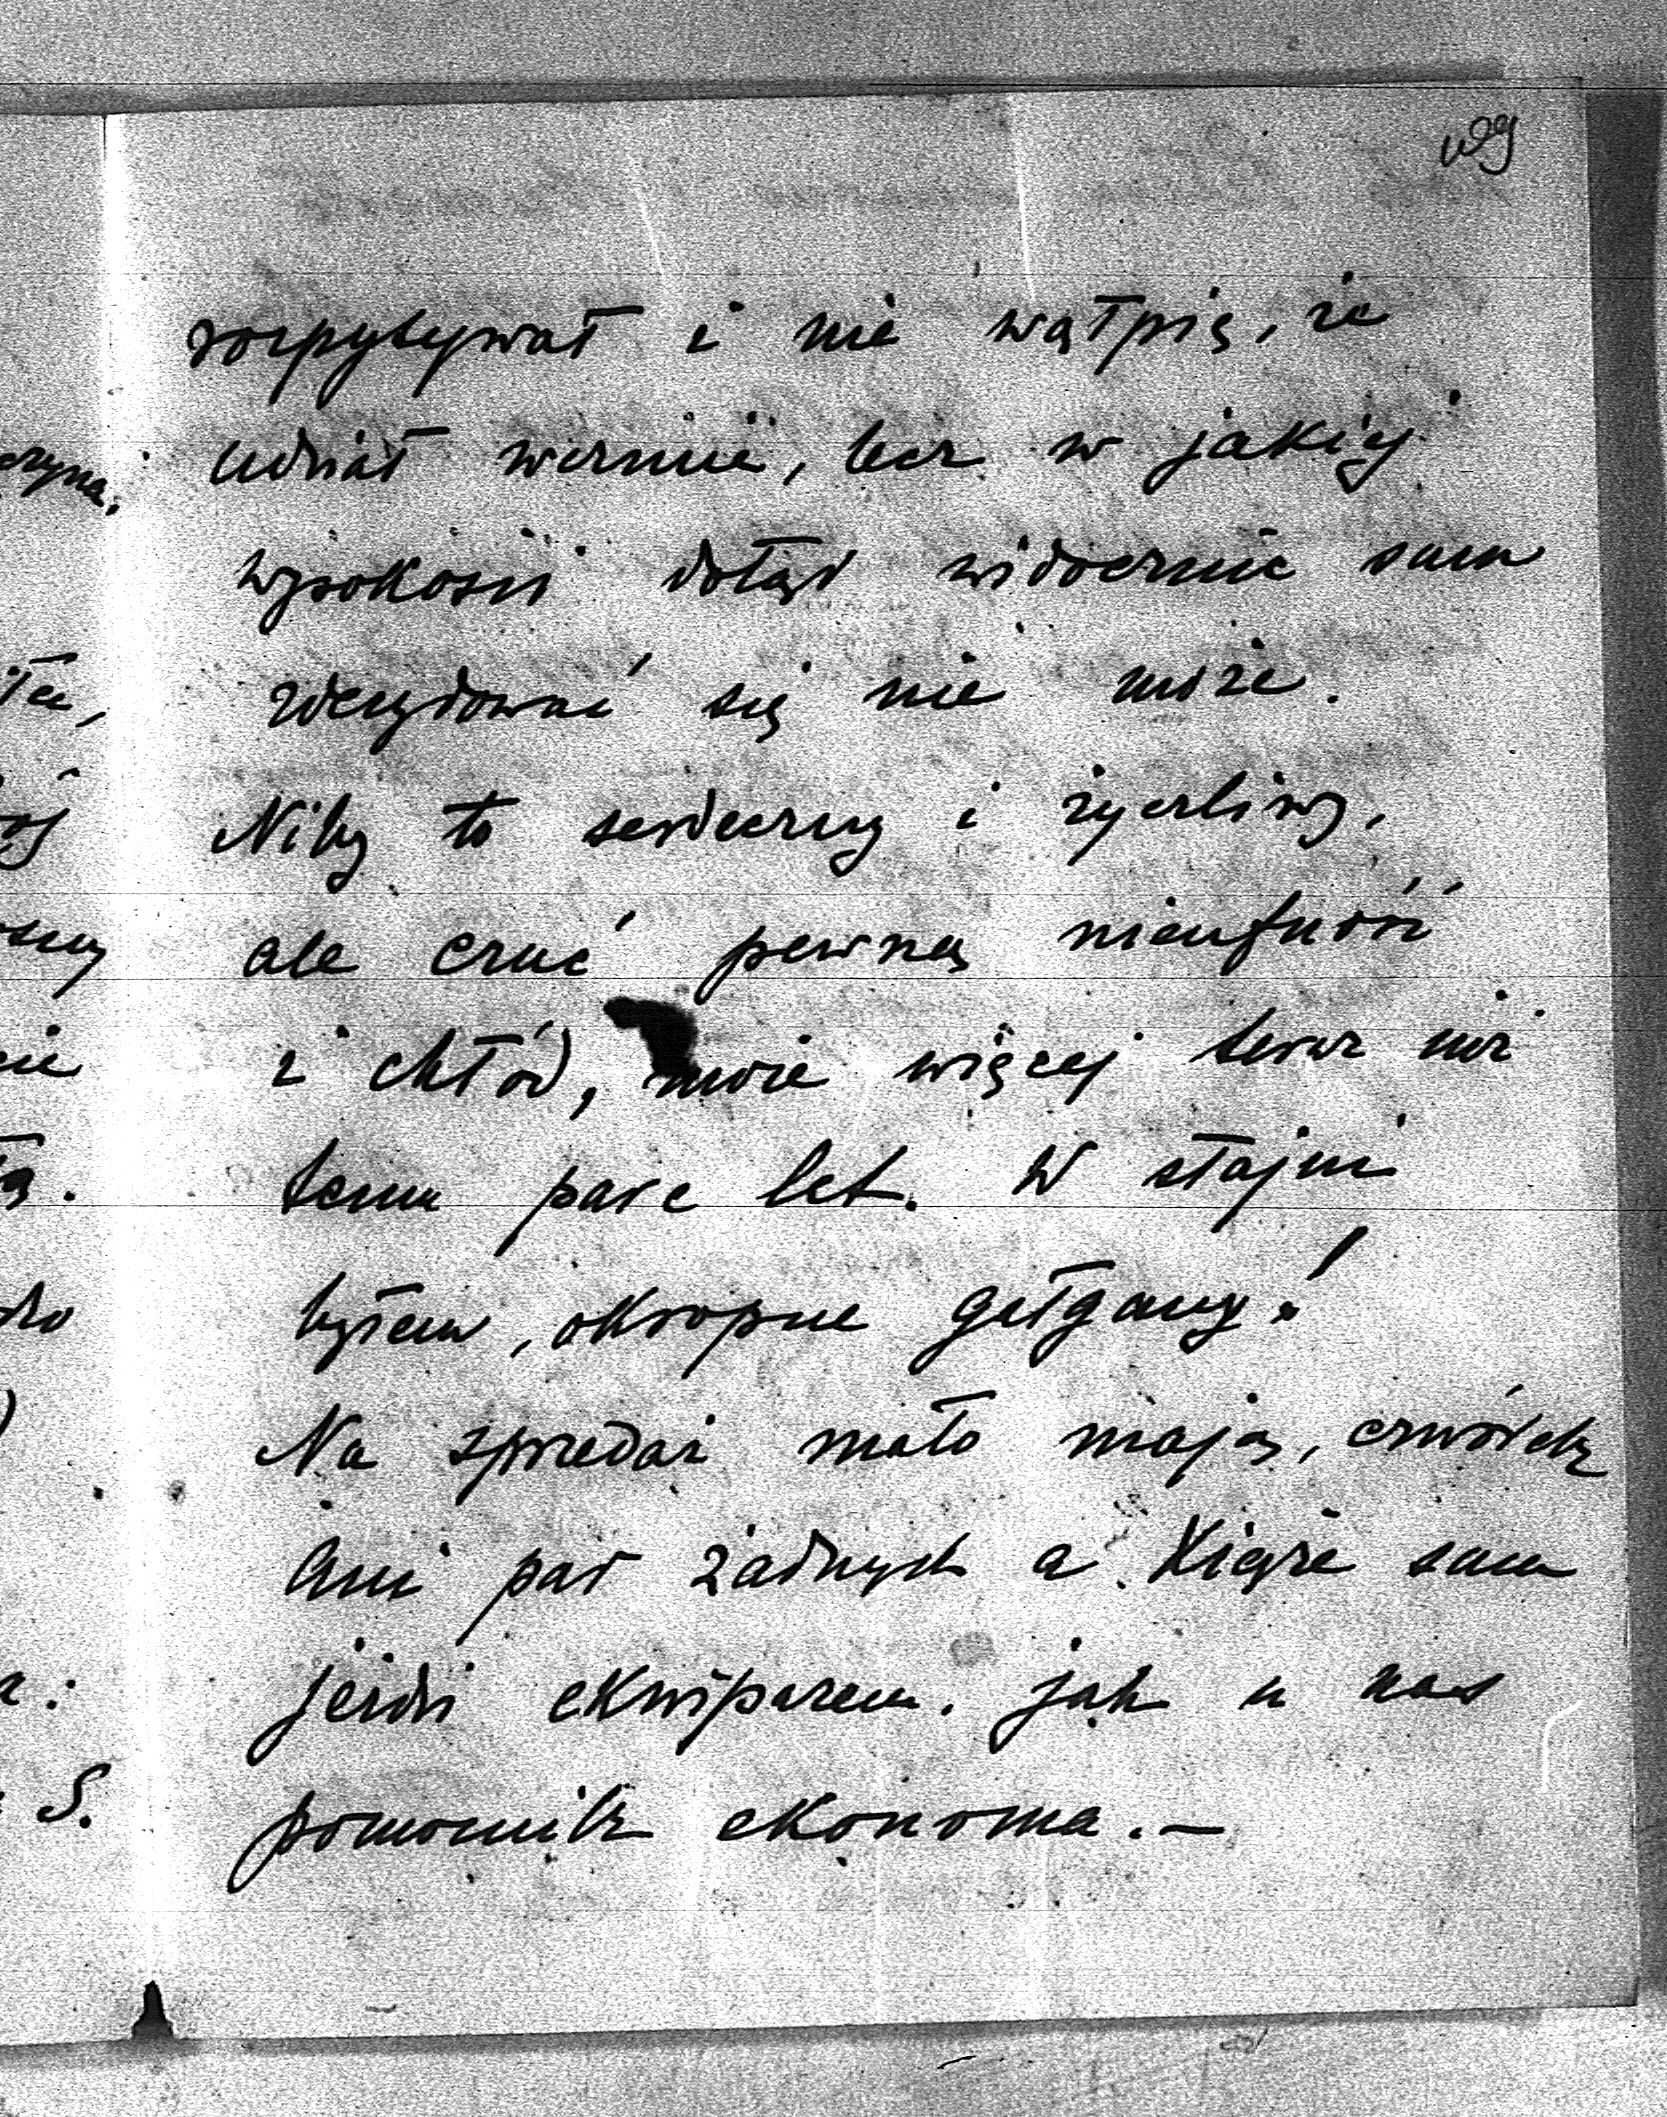 rozpytywał i nie wątpię, że
udział weźmie, lecz w jakiej
wysokości dotąd widocznie sam
zdecydować się nie może.
Niby to serdeczny i życzliwy,
ale czuć pewną nieufność
i chłód, może więcej teraz niż
temu parę lat. W stajni
byłem, okropne gałgany!
Na sprzedaż mało mają, czwórek
ani par żadnych a Książe sam
jeździ ekwipażem jak u nas
pomocnik ekonoma. —